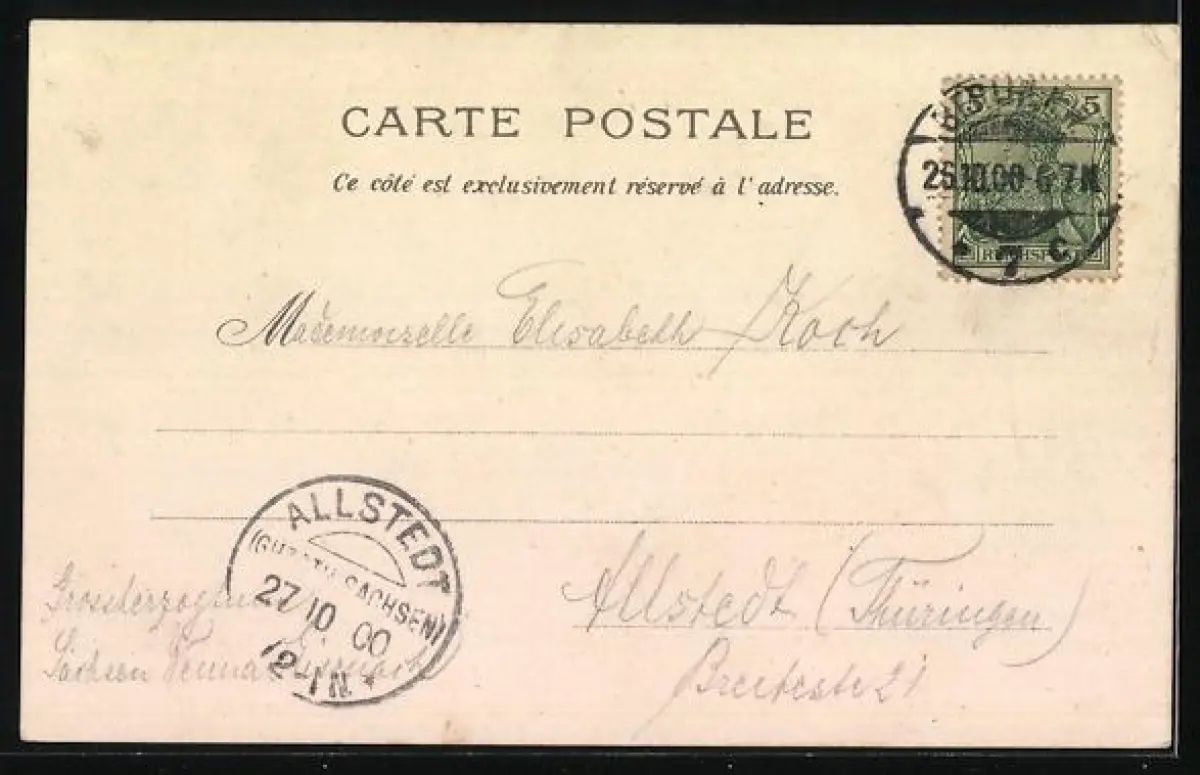 CARTE POSTALE
Ce côté est exclusivement réservé à l'adresse.
5 5
26.10.00 6-7N
REICHSPOST
7 c
Mademoiselle Elisabeth Koch
ALLSTEDT
SACHSEN)
27 10 00
12-1N
Allstedt (Thüringen)
Breitestr 21
Grossherzogtum
Sachsen Weimar Eisenach